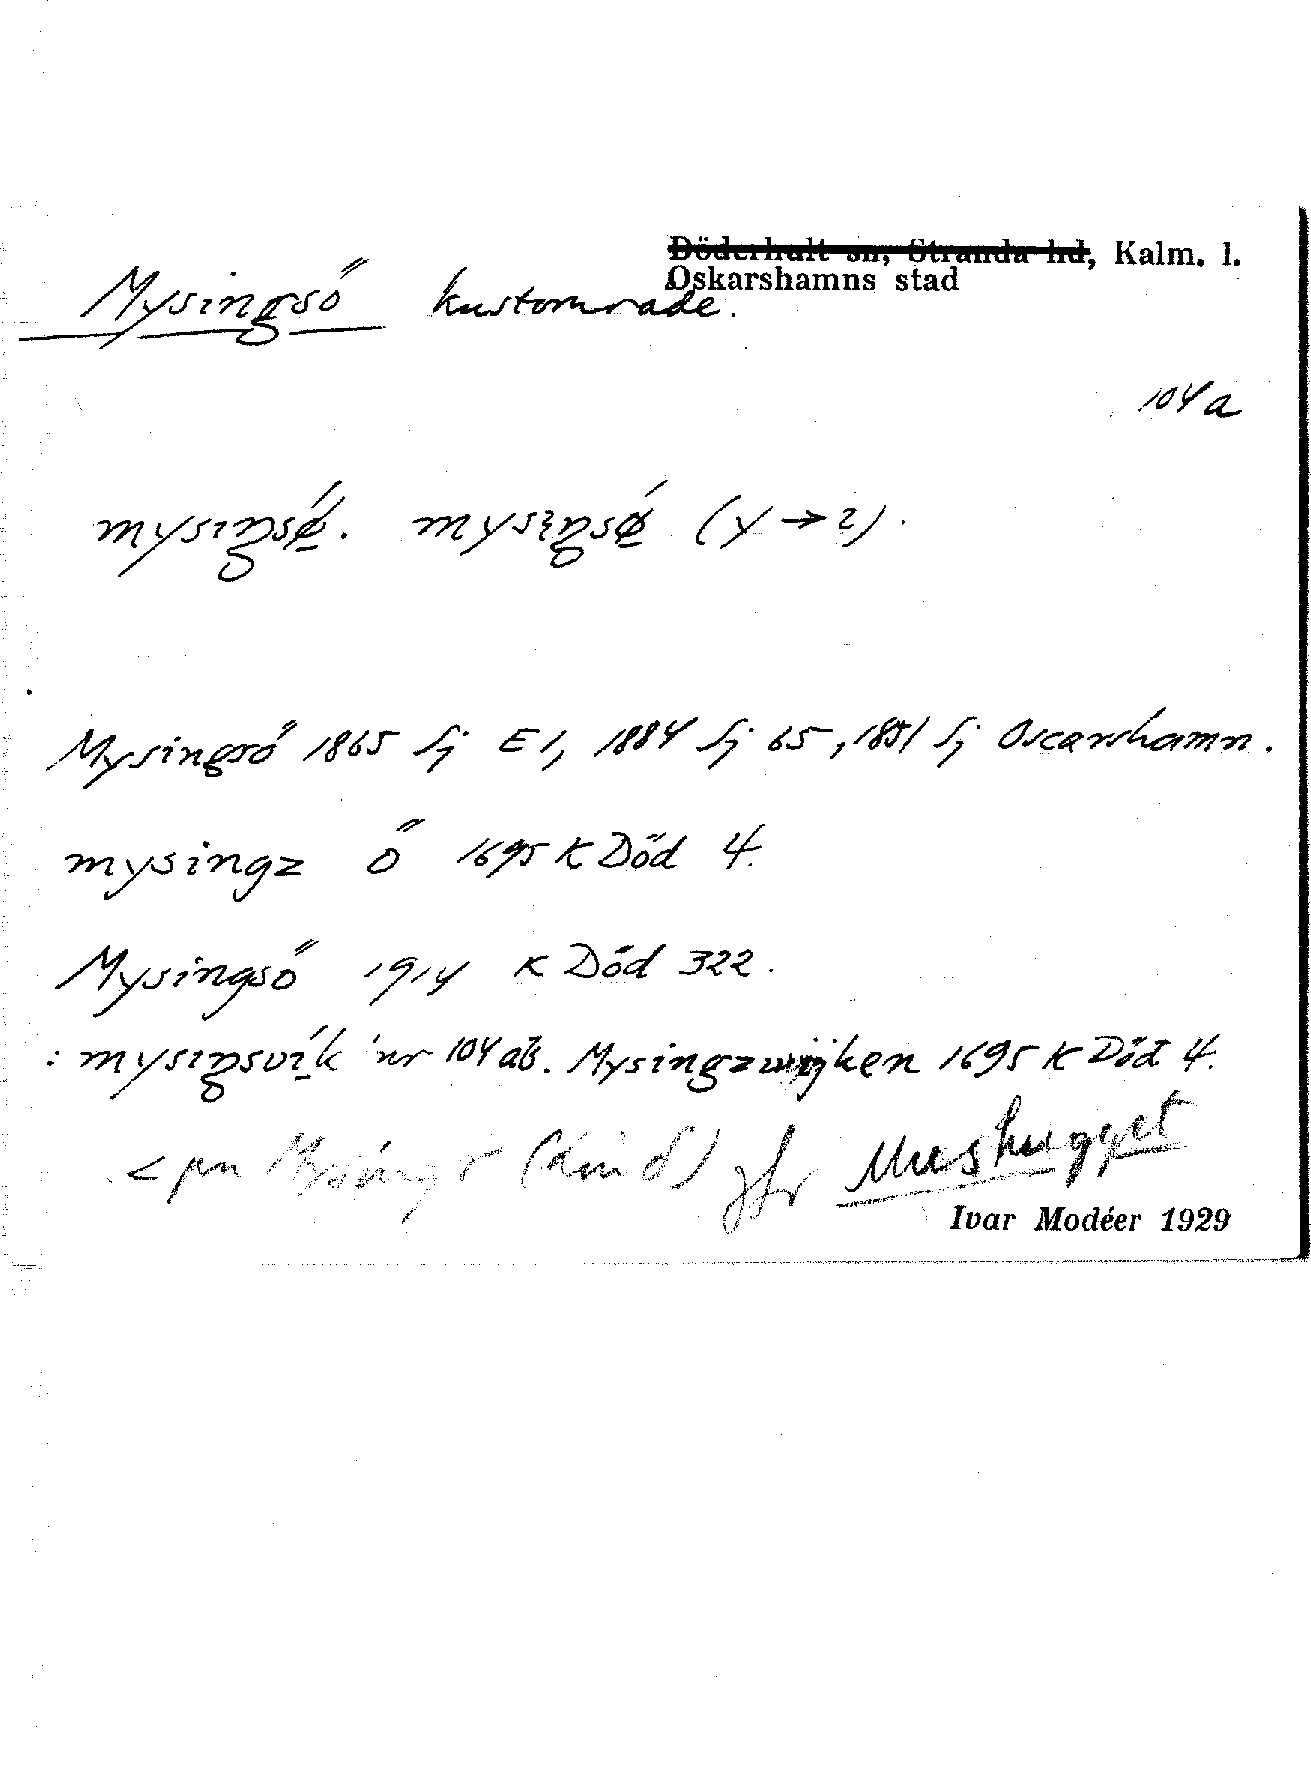 Döderhult sn, Stranda hd, Kalm. l.
Oskarshamns stad
Mysingsö kustområde.
104 a
mysıŋsǿ̲. mysıŋsǿ̲ (y → ı).
Mysingsö 1865 Sj E 1, 1884 Sj 65, 1851 Sj Oscarshamn.
mysingz ö 1695 K Död 4.
Mysingsö 1914 K Död 322.
: mysıŋsvı̲́k nr 104 ab. Mysingzwijken 1695 K Död 4.
< pn (Lind) jfr Mushugget
Ivar Modéer 1929